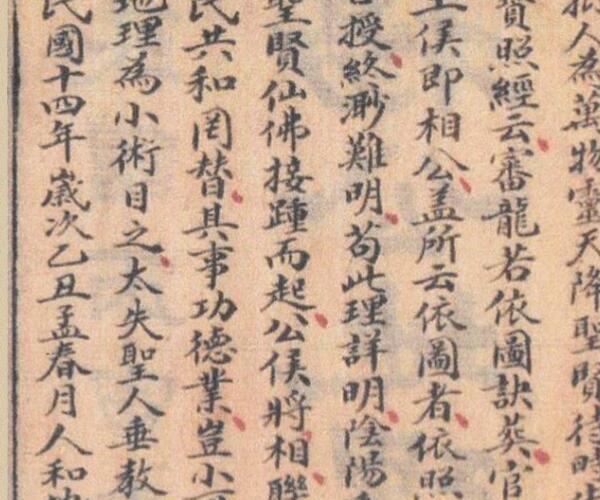 人為萬物靈天降聖賢待時
寶照經云審龍若依圖訣葬官
王侯即相公盖所云依圖者依照
授終渺難明苟此理詳明陰陽
聖賢仙佛接踵而起公侯將相聯
民共和罔替其事功德業豈小
地理為小術目之太失聖人垂教
民國十四年歲次乙丑孟春月人和